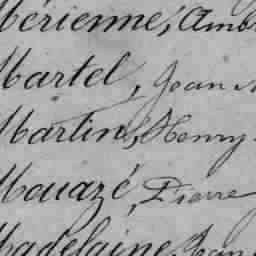 Mérienne, Amb
Martel, Jean
Martin, Henry
Mouazé, Pierre
Madelaine, Jean